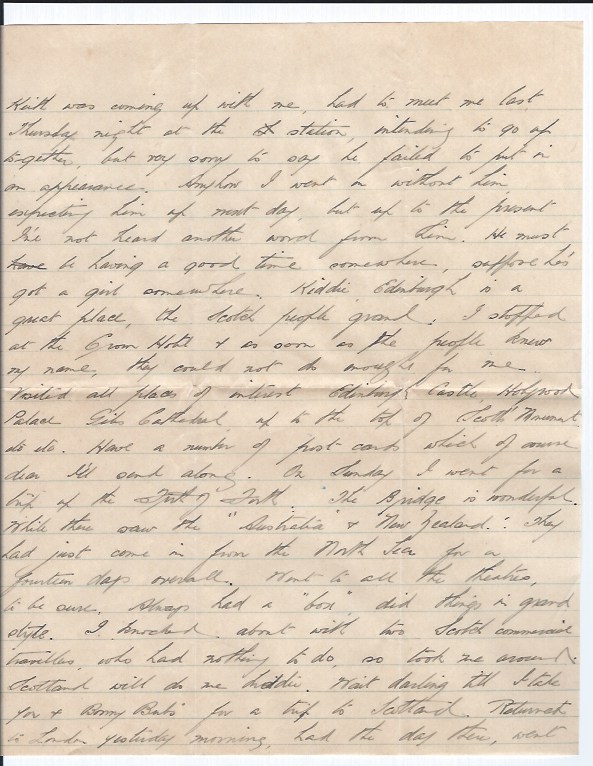 Keith was coming up with me, had to meet me last
Thursday night at the station, intending to go up
together, but very sorry to say he failed to put in
an appearance. Anyhow I went on without him,
expecting him up next day, but up to the present
I've not heard another word from him. He must
have be having a good time somewhere, suppose he's
got a girl somewhere. Kiddie, Edinburgh is a
great place, the Scotch people grand. I stopped
at the Hotel & as soon as the people knew
my name, they could not do enough for me.
Visited all places of interest Edinburgh Castle, Holyrood
Palace Giles Cathedral, up to the top of Scott Monument,
etc etc. Have a number of post cards which of course
dear I'll send along. On Sunday I went for a
trip up the Firth of Forth. The Bridge is wonderful.
While there saw the "Australia" & "New Zealand". They
had just come in from the North Sea for a
fourteen days overall. Went to all the theatres,
to be sure. Always had a "box", did things in grand
style. I knocked about with two Scotch commercial
travellers, who had nothing to do, so took me around.
Scotland will do me kiddie. Wait darling till I take
you & Bonny for a trip to Scotland. Returned
to London yesterday morning, had the day there, went